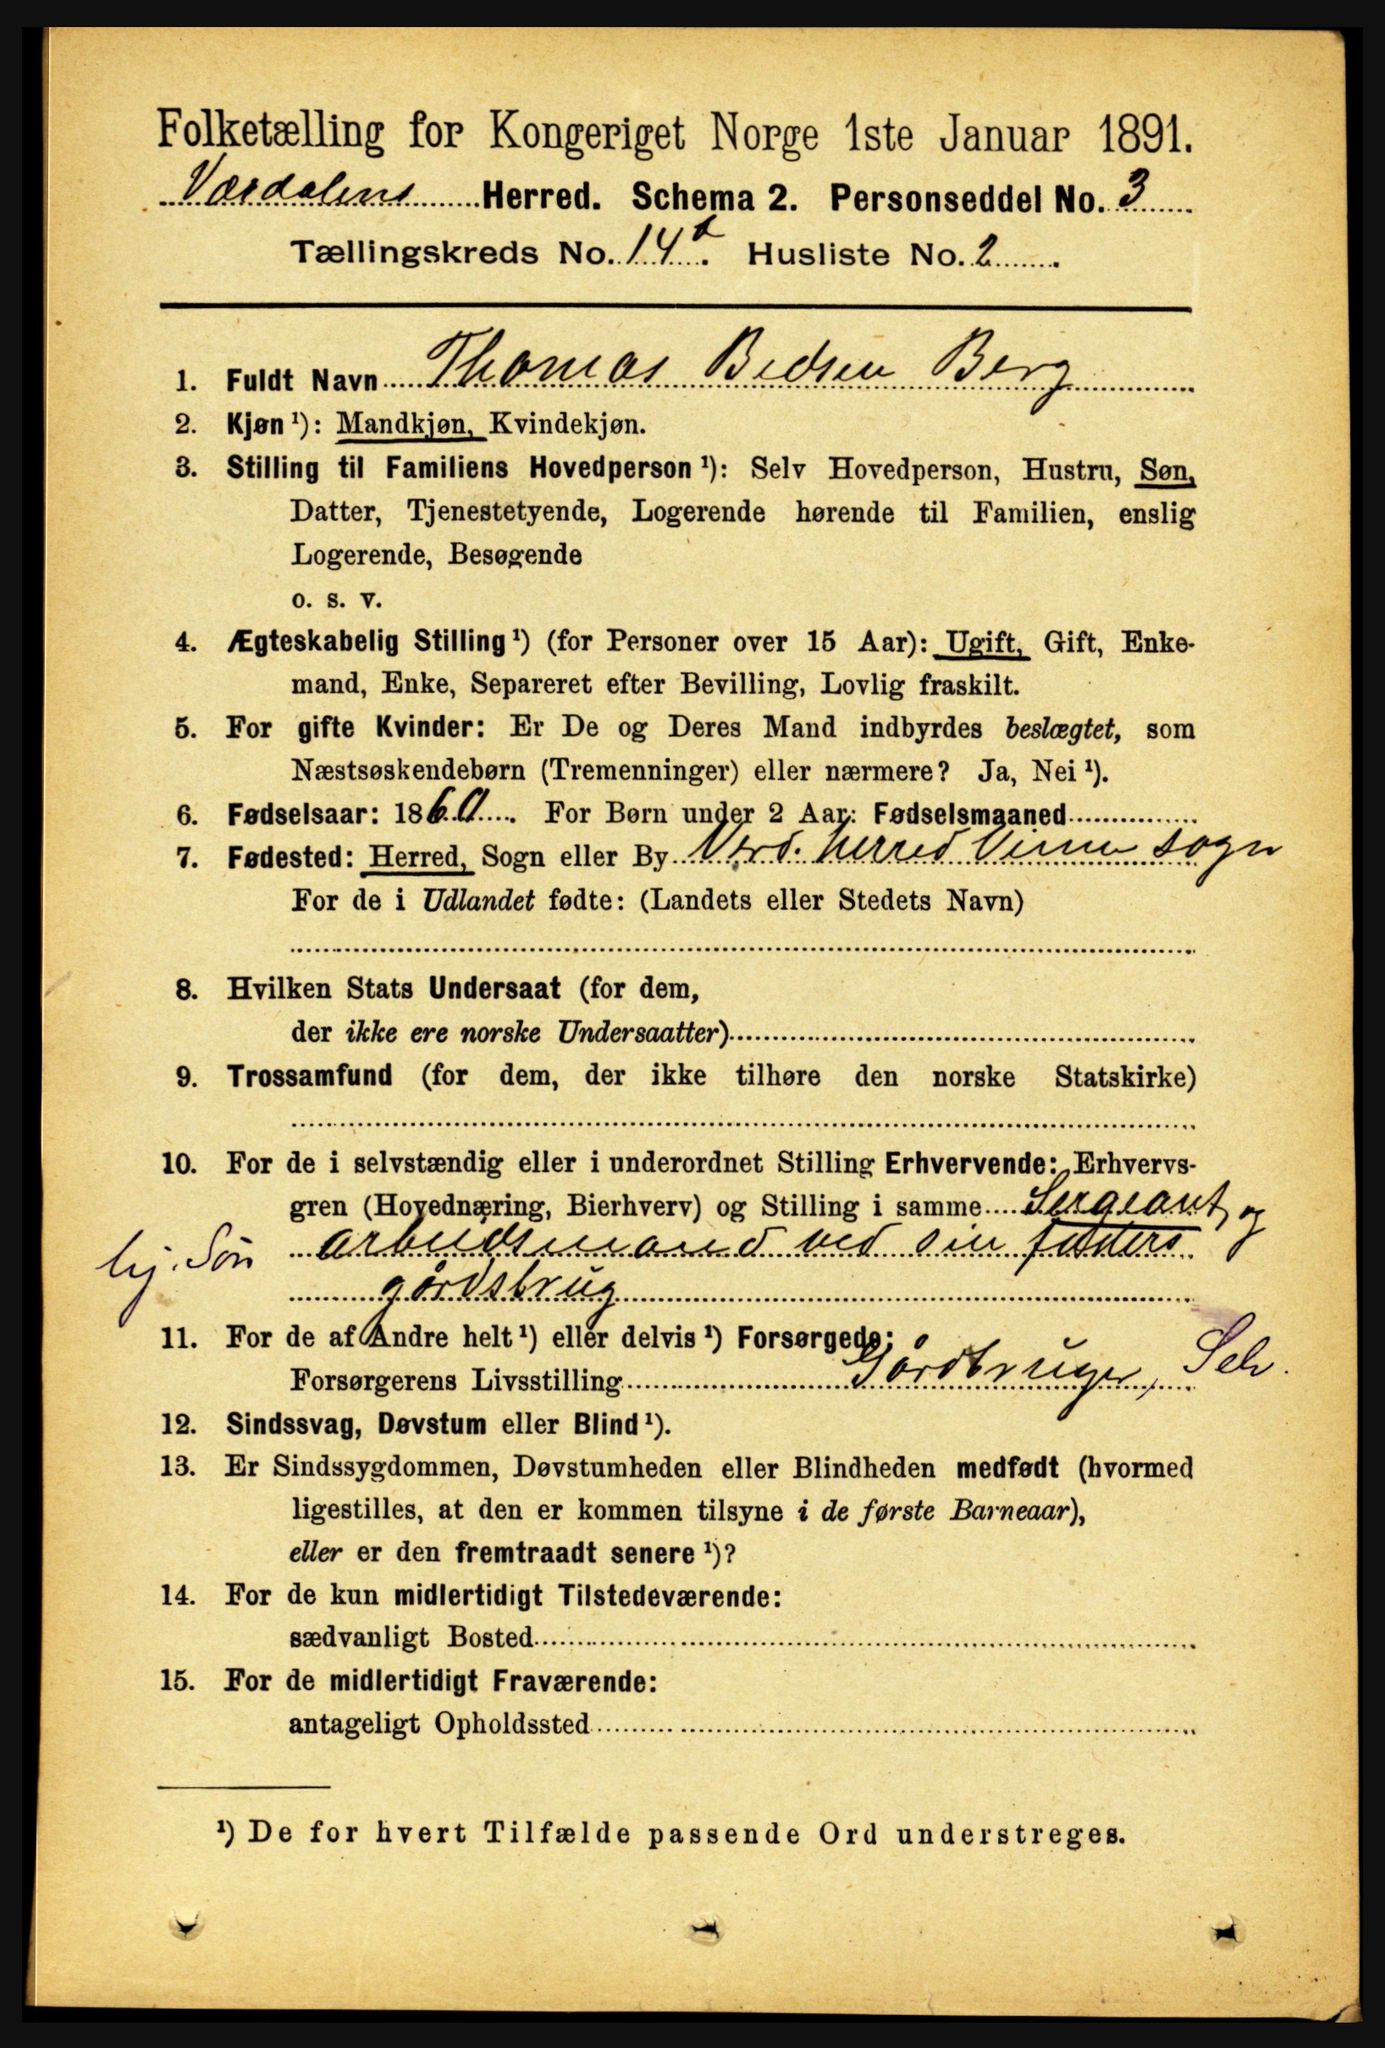 Folketælling for Kongeriget Norge 1ste Januar 1891.
Værdalens Herred. Schema 2. Personseddel No. 3
Tællingskreds No. 14 b. Husliste No. 2
1. Fuldt Navn Thomas Bedsen Berg
2. Kjøn ¹): Mandkjøn, Kvindekjøn.
3. Stilling til Familiens Hovedperson ¹): Selv Hovedperson, Hustru, Søn,
Datter, Tjenestetyende, Logerende hørende til Familien, enslig
Logerende, Besøgende
o. s. v.
4. Ægteskabelig Stilling ¹) (for Personer over 15 Aar): Ugift, Gift, Enke-
mand, Enke, Separeret efter Bevilling, Lovlig fraskilt.
5. For gifte Kvinder: Er De og Deres Mand indbyrdes beslægtet, som
Næstsøskendebørn (Tremenninger) eller nærmere? Ja, Nei ¹).
6. Fødselsaar: 1860. For Børn under 2 Aar: Fødselsmaaned
7. Fødested: Herred, Sogn eller By Verd. herred Vinne sogn
For de i Udlandet fødte: (Landets eller Stedets Navn)
8. Hvilken Stats Undersaat (for dem,
der ikke ere norske Undersaatter)
9. Trossamfund (for dem, der ikke tilhøre den norske Statskirke)
10. For de i selvstændig eller i underordnet Stilling Erhvervende: Erhvervs-
gren (Hovednæring, Bierhverv) og Stilling i samme Sergeant, og
hj. Søn arbeidsmand ved sin faders
gårdsbrug
11. For de af Andre helt ¹) eller delvis ¹) Forsørgede:
Forsørgerens Livsstilling Gårdbruger, Selv.
12. Sindssvag, Døvstum eller Blind ¹).
13. Er Sindssygdommen, Døvstumheden eller Blindheden medfødt (hvormed
ligestilles, at den er kommen tilsyne i de første Barneaar),
eller er den fremtraadt senere ¹)?
14. For de kun midlertidigt Tilstedeværende:
sædvanligt Bosted
15. For de midlertidigt Fraværende:
antageligt Opholdssted
¹) De for hvert Tilfælde passende Ord understreges.